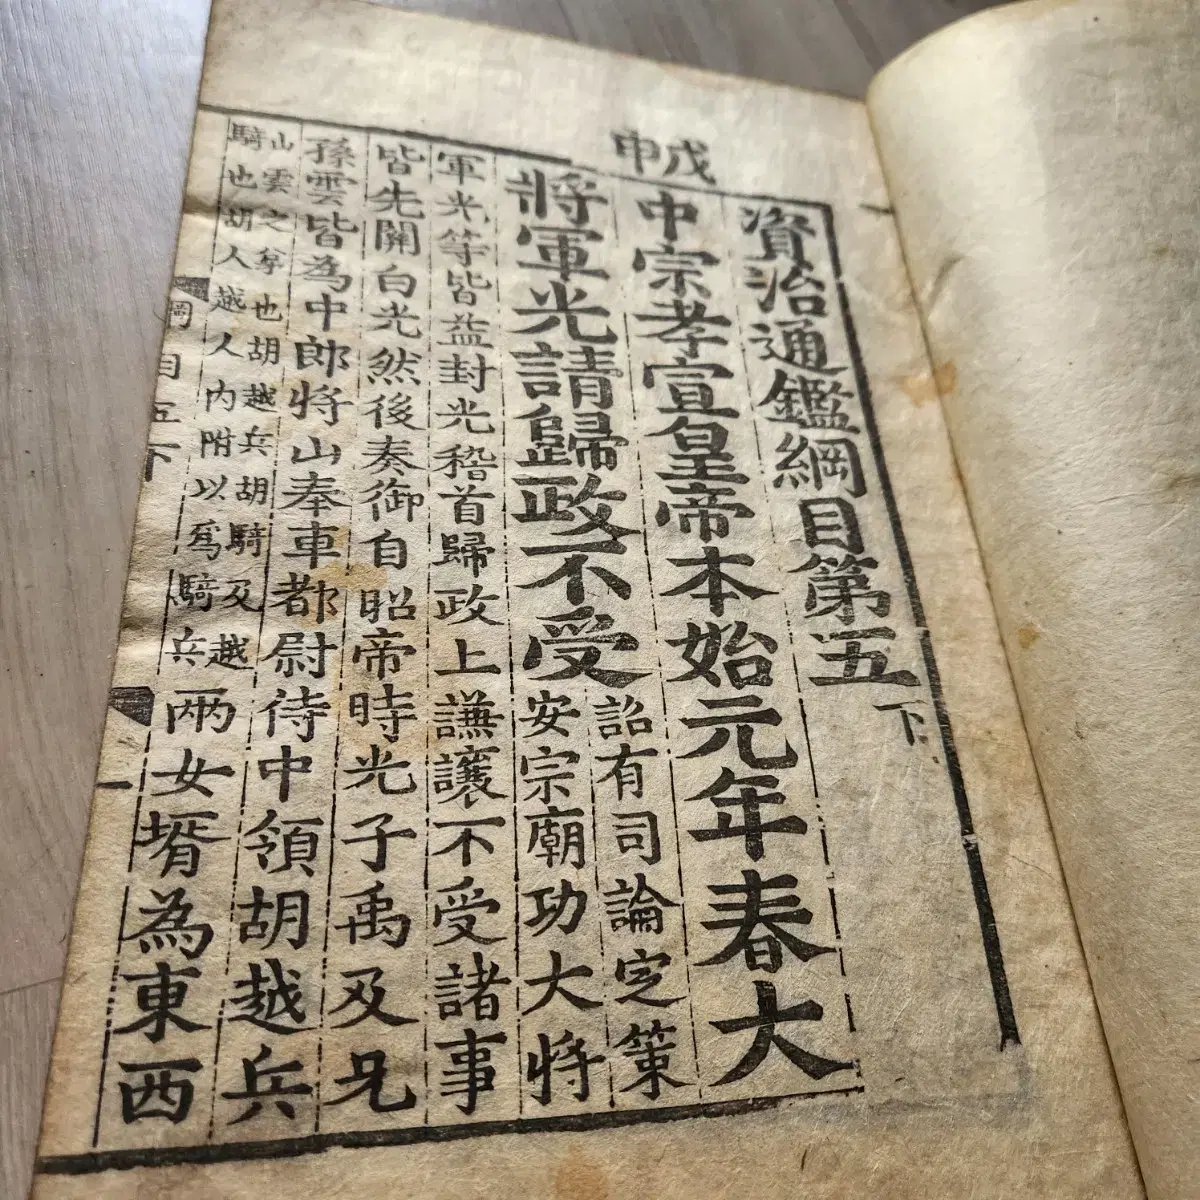 資治通鑑綱目第五下
戊申
中宗孝宣皇帝本始元年春大
將軍光請歸政不受
詔有司論定策
安宗廟功大將
軍光等皆益封光稽首歸政上謙讓不受諸事
皆先關白光然後奏御自昭帝時光子禹及兄
孫雲皆為中郎將山奉車都尉侍中領胡越兵
山雲之弟也胡越兵胡騎及越
騎也胡人越人內附以為騎兵
兩女壻為東西
綱目五下
一